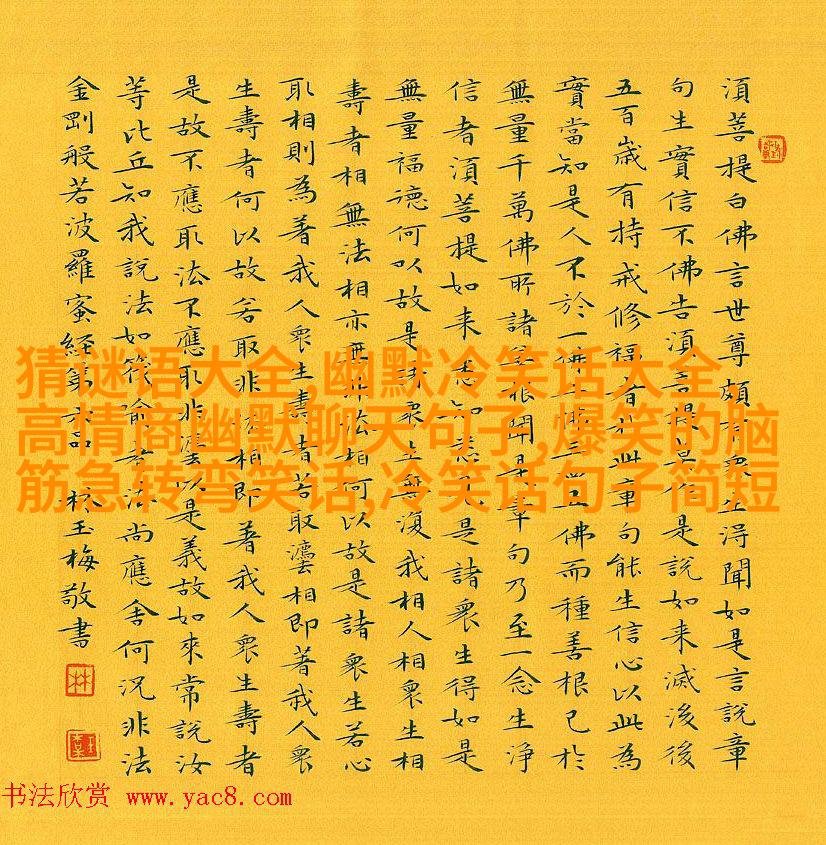 須菩提白佛言世尊頗有衆生得聞如是言說章
句生實信不佛告須菩提是說如来滅後後
五百歲有持戒修福者於此章句能生信心以此為
實當知是人不於一佛二佛三佛而種善根已於
無量千萬佛所諸善根聞是章句乃至一念生淨
信者須菩提如来悉知悉見是諸衆生得如是
無量福德何以故是諸衆生無復我相人相衆生相
壽者相無法相亦無非法相何以故是諸衆生若心
取相則為著我人衆生壽者若取灋相即著我人衆
生壽者何以故若取非法相即著我人衆生壽者
是故不應取法不應取非灋以是義故如來常說汝
等比丘知我說法如筏喻者法尚應舍何況非法
金剛般若波羅蜜経第六品 林玉梅敬書
猜谜语大全,幽默冷笑话大全
高情商幽默聊天句子,爆笑的脑
筋急转弯笑话,冷笑话句子简短
书法欣赏 www.yac8.com